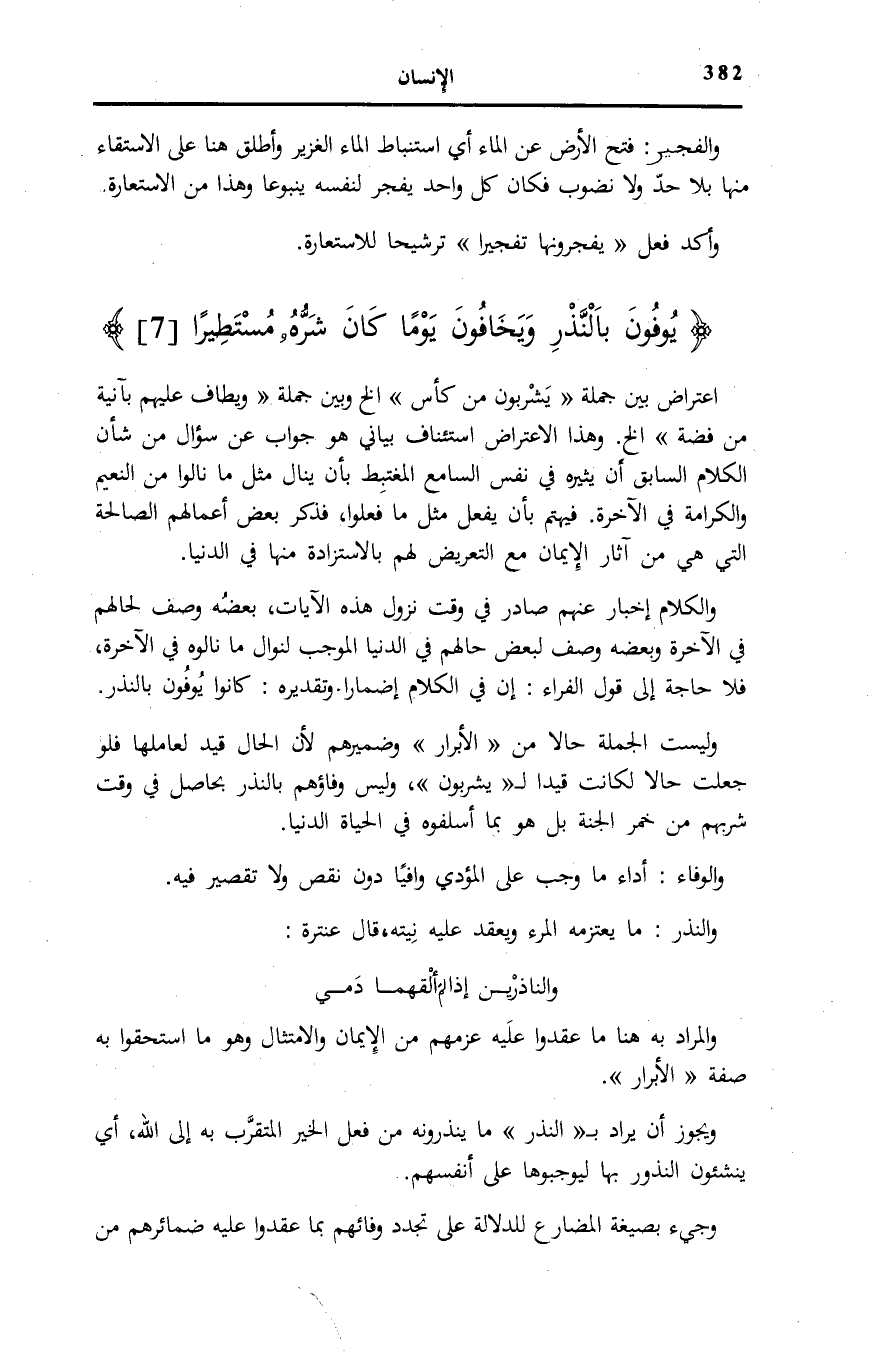 382
الإنسان
والفجير: فتح الأرض عن الماء أي استنباط الماء الغزير وأطلق هنا على الاستقاء
منها بلا حدّ ولا نضوب فكان كل واحد يفجر لنفسه ينبوعا وهذا من الاستعارة.
وأكد فعل « يفجرونها تفجيرا » ترشيحا للاستعارة.
﴿ يُوفُونَ بِالنَّذْرِ وَيَخَافُونَ يَوْمًا كَانَ شَرُّهُ مُسْتَطِيرًا [7] ﴾
اعتراض بين جملة « يَشْربون من كأس » الخ وبين جملة « ويطاف عليهم بآنية
من فضة » الخ. وهذا الاعتراض استئناف بياني هو جواب عن سؤال من شأن
الكلام السابق أن يثيره في نفس السامع المغتبِط بأن ينال مثل ما نالوا من النعيم
والكرامة في الآخرة. فيهتم بأن يفعل مثل ما فعلوا، فذكر بعض أعمالهم الصالحة
التي هي من آثار الإيمان مع التعريض لهم بالاستزادة منها في الدنيا.
والكلام إخبار عنهم صادر في وقت نزول هذه الآيات، بعضُه وصف لحالهم
في الآخرة وبعضه وصف لبعض حالهم في الدنيا الموجب لنوال ما نالوه في الآخرة،
فلا حاجة إلى قول الفراء : إن في الكلام إضمارا. وتقديره : كانوا يُوفُون بالنذر.
وليست الجملة حالا من « الأبرار » وضميرهم لأن الحال قيد لعاملها فلو
جعلت حالا لكانت قيدا لـ« يشربون »، وليس وفاؤهم بالنذر بحاصل في وقت
شربهم من خمر الجنة بل هو بما أسلفوه في الحياة الدنيا.
والوفاء : أداء ما وجب على المؤدي وافيًا دون نقص ولا تقصير فيه.
والنذر : ما يعتزمه المرء ويعقد عليه نِيته، قال عنترة :
والناذرْيـن إذا لم ألْقهمـا دَمـي
والمراد به هنا ما عقدوا علَيه عزمهم من الإيمان والامتثال وهو ما استحقوا به
صفة « الأبرار ».
ويجوز أن يراد بـ« النذر » ما ينذرونه من فعل الخير المتقرَّب به إلى الله، أي
ينشئون النذور بها ليوجبوها على أنفسهم.
وجيء بصيغة المضارع للدلالة على تجدد وفائهم بما عقدوا عليه ضمائرهم من